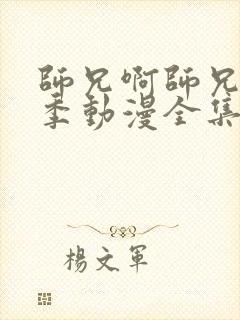 師兄啊師兄
季動漫全集
楊文軍